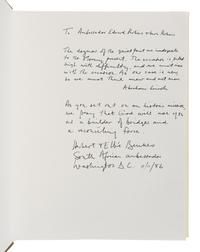 To Ambassador Edward Perkins
The dogmas of the quiet past are inadequate
to the stormy present. The occasion is piled
high with difficulty, and we must rise
with the occasion. As our case is new,
so we must think anew and act anew
Abraham Lincoln
As you set out on an historic mission,
we pray that God will use you
as a builder of bridges and
a reconciling force
Herbert &
South African Ambassador
Washington D.C.